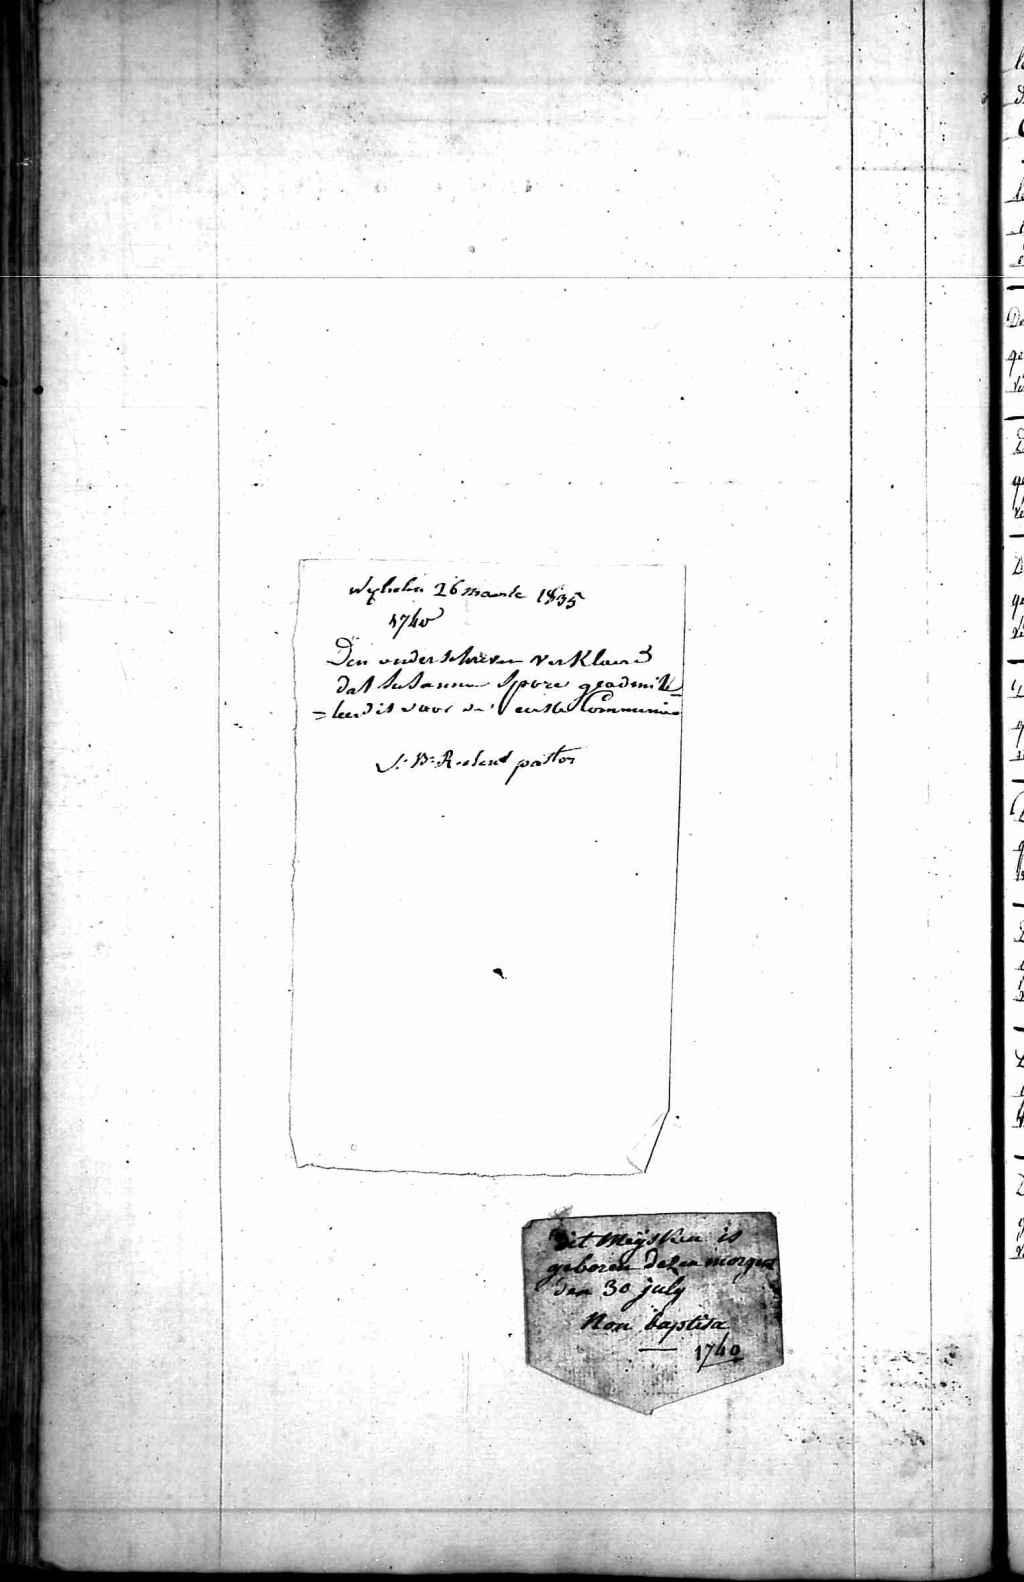 26 maerte 1835
1740
Den onderschreven verklaerd
dat susanna Spore geadmit
= teerd is voor de eerste Communie
J: B: pastor
Dit Meysken is
geboren dezen morgen
den 30 july
Non baptisa
1740